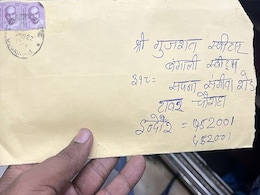 श्री गुजरात स्वीट्स
बंगाली स्वीट्स
३१८- सपना संगीता रोड
टावर चौराहा
इन्दौर = 452001
452001